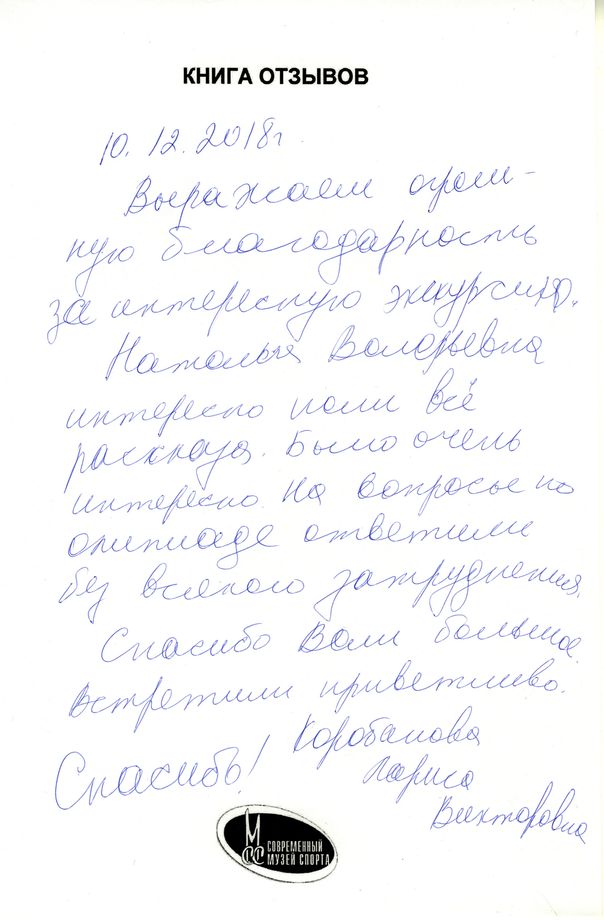 КНИГА ОТЗЫВОВ
10.12.2018г
Выражаем огром-
ную благодарность
за интересную экскурсию.
Наталья Валерьевна
интересно нам всё
расказа. Было очень
интересно. На вопросы по
олипиаде ответили
без всякого затруднения.
Спасибо Вам большое.
Встретили приветливо.
Коробанова
Спасибо! Лариса
Викторовна
М СС СОВРЕМЕННЫЙ
МУЗЕЙ СПОРТА